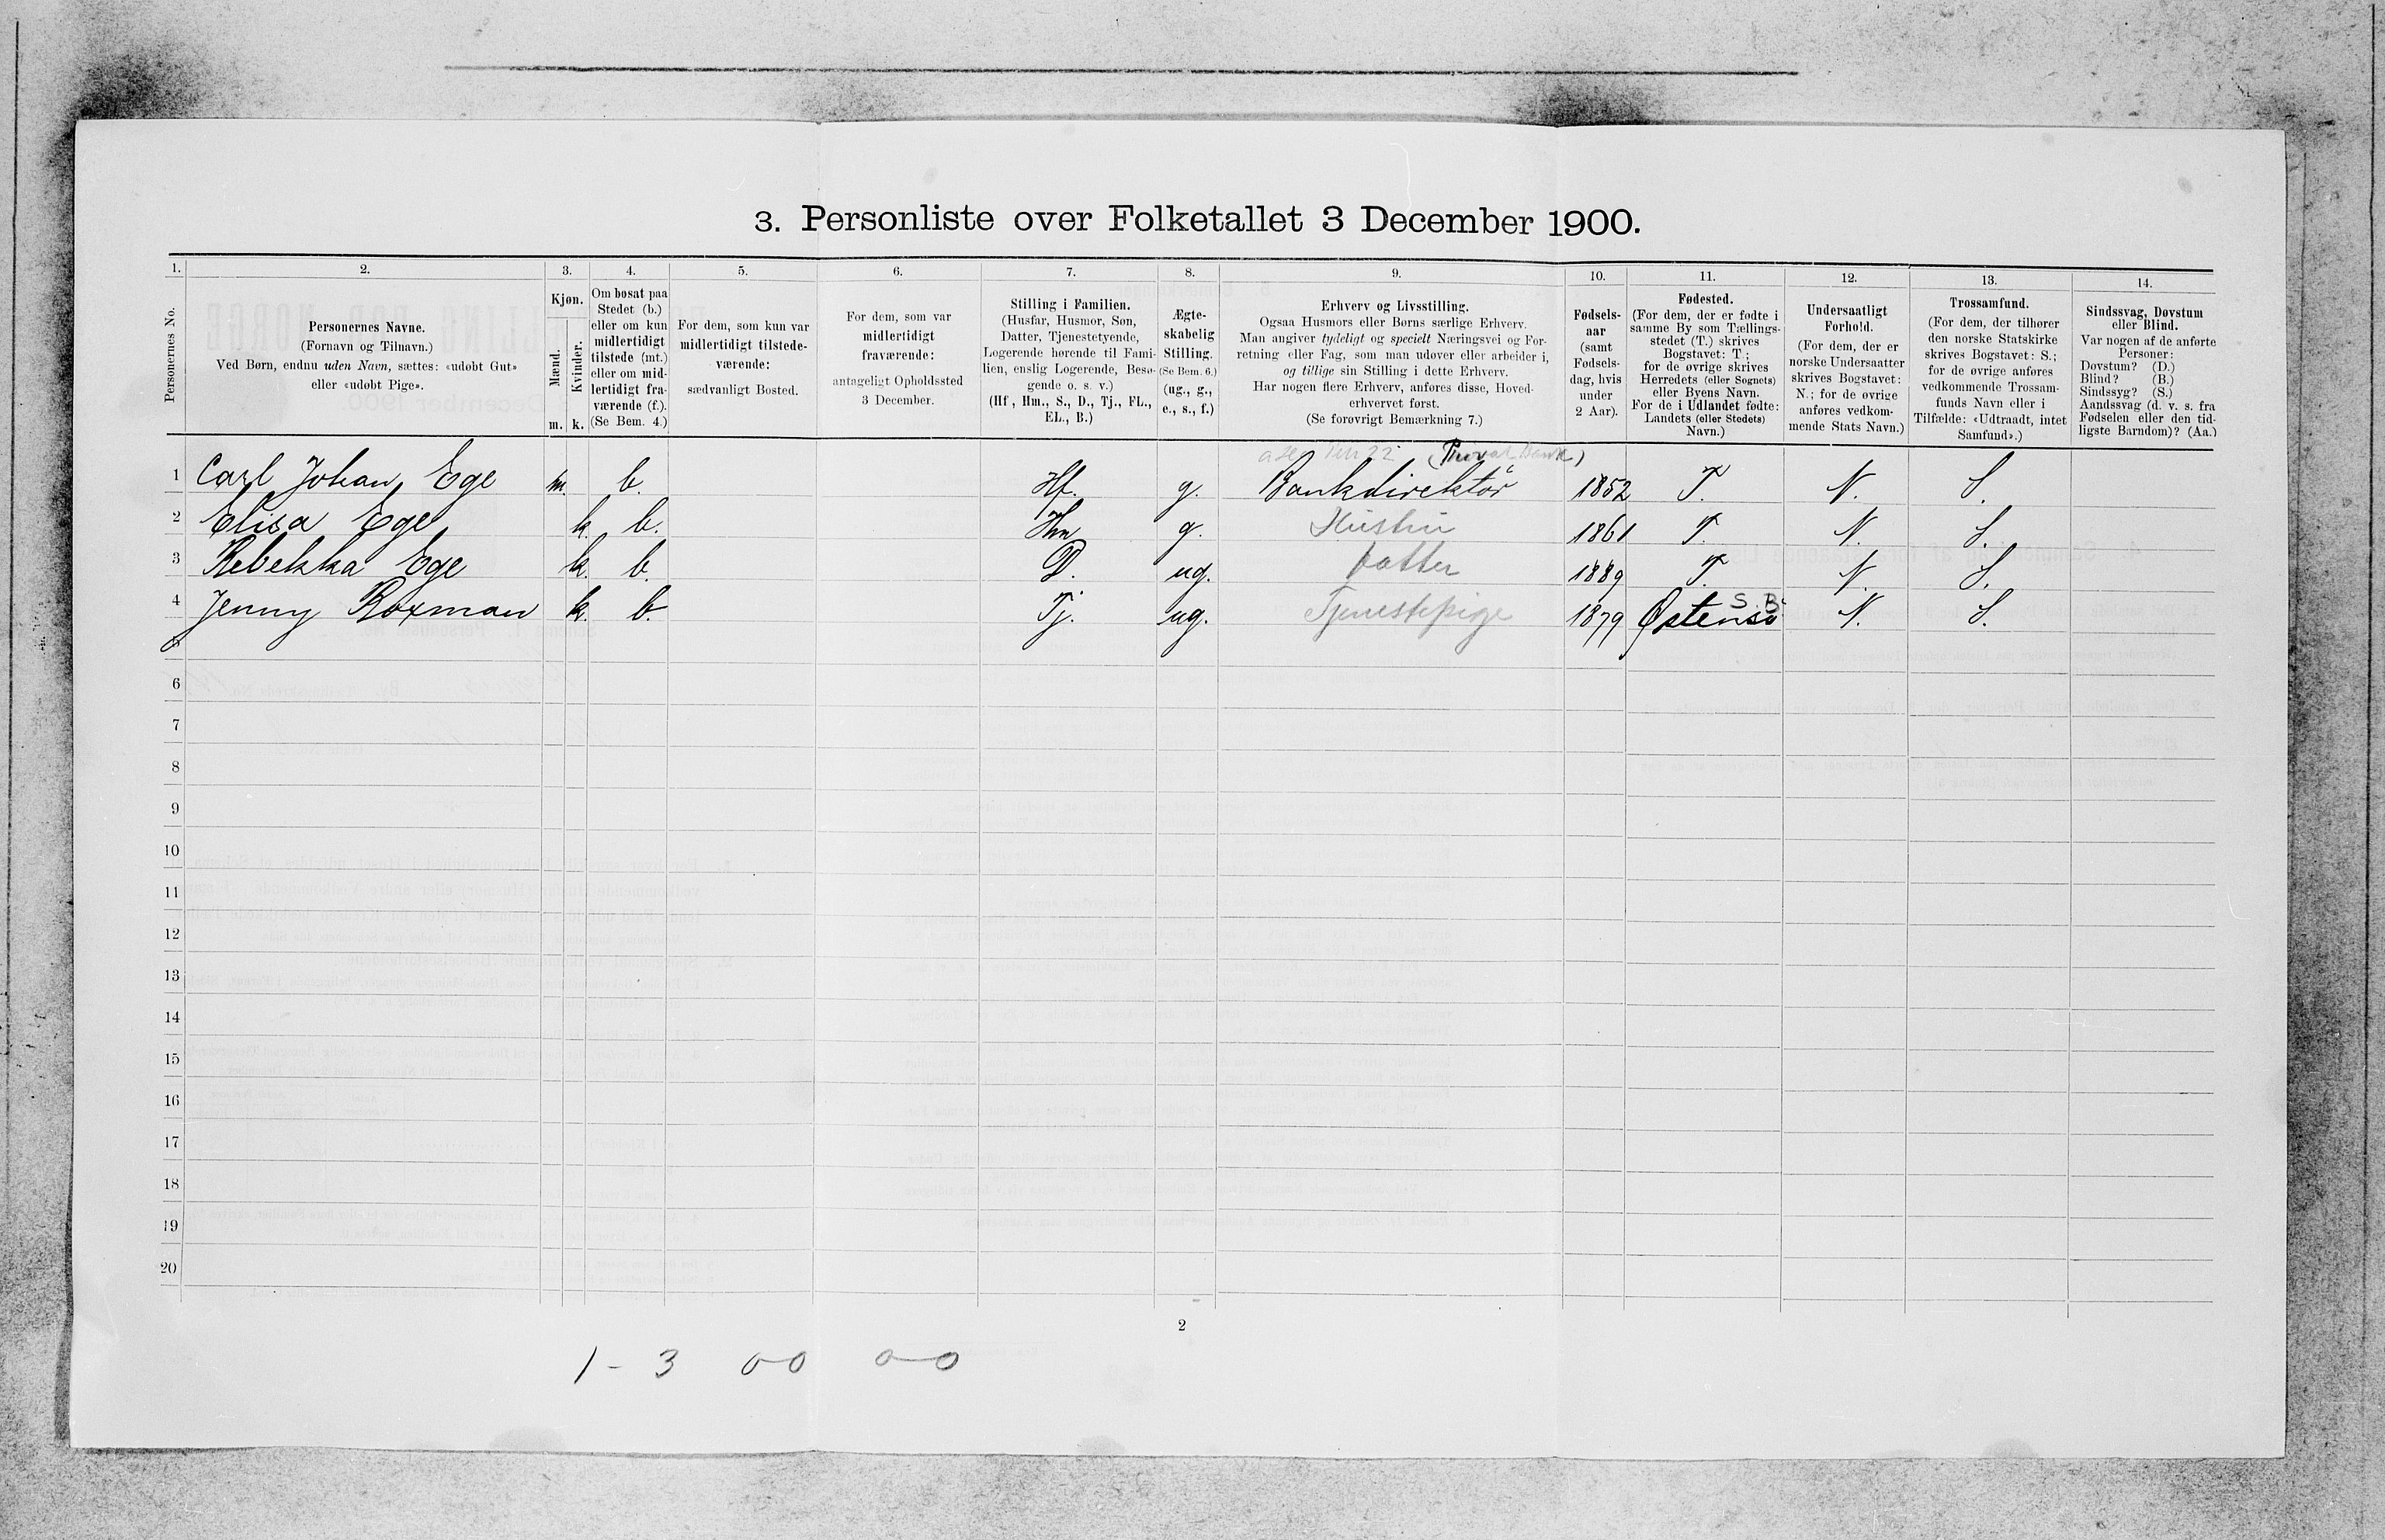 3. Personliste over Folketallet 3 December 1900.
1. 2. 3. 4. 5. 6. 7. 8. 9. 10. 11. 12. 13. 14.
Personernes No.
Personernes Navne.
(Fornavn og Tilnavn.)
Ved Børn, endnu uden Navn, sættes: «udøbt Gut»
eller «udøbt Pige».
Kjøn.
Mænd.
Kvinder.
m. k.
Om bosat paa
Stedet (b.)
eller om kun
midlertidigt
tilstede (mt.)
eller om mid-
lertidigt fra-
værende (f.).
(Se Bem. 4.)
For dem, som kun var
midlertidigt tilstede-
værende:
sædvanligt Bosted.
For dem, som var
midlertidigt
fraværende:
antageligt Opholdssted
3 December.
Stilling i Familien.
(Husfar, Husmor, Søn,
Datter, Tjenestetyende,
Logerende hørende til Fami-
lien, enslig Logerende, Besø-
gende o. s. v.)
(Hf., Hm., S., D., Tj., FL.,
EL., B.)
Ægte-
skabelig
Stilling.
(Se Bem. 6.)
(ug., g.,
e., s., f.)
Erhverv og Livsstilling.
Ogsaa Husmors eller Børns særlige Erhverv.
Man angiver tydeligt og specielt Næringsvei og For-
retning eller Fag, som man udøver eller arbeider i,
og tillige sin Stilling i dette Erhverv.
Har nogen flere Erhverv, anføres disse, Hoved-
erhvervet først.
(Se forøvrigt Bemærkning 7.)
Fødsels-
aar
(samt
Fødsels-
dag, hvis
under
2 Aar).
Fødested.
(For dem, der er fødte i
samme By som Tællings-
stedet (T.) skrives
Bogstavet: T.;
for de øvrige skrives
Herredets (eller Sognets)
eller Byens Navn.
For de i Udlandet fødte:
Landets (eller Stedets)
Navn.)
Undersaatligt
Forhold.
(For dem, der er
norske Undersaatter
skrives Bogstavet:
N.; for de øvrige
anføres vedkom-
mende Stats Navn.)
Trossamfund.
(For dem, der tilhører
den norske Statskirke
skrives Bogstavet: S.;
for de øvrige anføres
vedkommende Trossam-
funds Navn eller i
Tilfælde: «Udtraadt, intet
Samfund».)
Sindssvag, Døvstum
eller Blind.
Var nogen af de anførte
Personer:
Døvstum? (D.)
Blind? (B.)
Sindssyg? (S.)
Aandssvag (d. v. s. fra
Fødselen eller den tid-
ligste Barndom)? (Aa.)
(Privat Bank)
1 Carl Johan Ege m. b. Hf. g. Bankdirektør 1852 T. N. S.
2 Elisa Ege k. b. Hm g. Hustru 1861 T. N. S.
3 Rebekka Ege k. b. D. ug. Datter 1889 T. N. S.
S. B.
4 Jenny Roxman k. b. Tj. ug. Tjenestepige 1879 Østensø N. S.
5
6
7
8
9
10
11
12
13
14
15
16
17
18
19
20
2
1 - 3 0-0 0-0